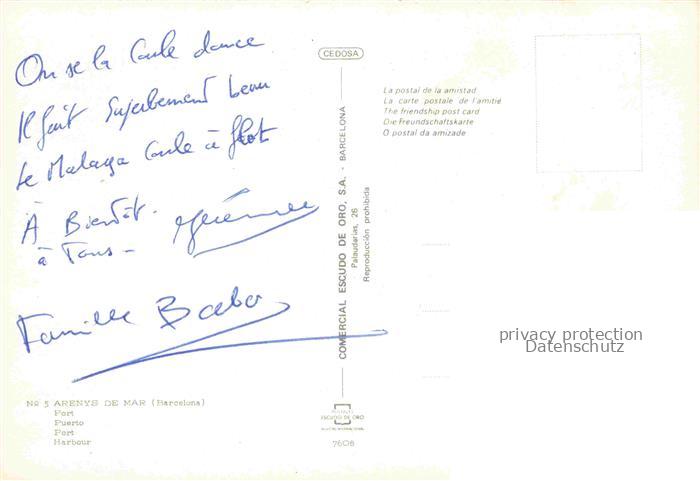 On se la coule douce
Il fait superbement beau
Le Malaga coule à flot
A Bientôt.
à Tous -
Famille
Nº 5 ARENYS DE MAR (Barcelona)
Port
Puerto
Port
Harbour
CEDOSA
COMERCIAL ESCUDO DE ORO, S.A. - BARCELONA
Palaudarias, 26
Reproducción prohibida
ESCUDO DE ORO
7608
La postal de la amistad
La carte postale de l'amitié
The friendship post card
Die Freundschaftskarte
O postal da amizade
privacy protection
Datenschutz